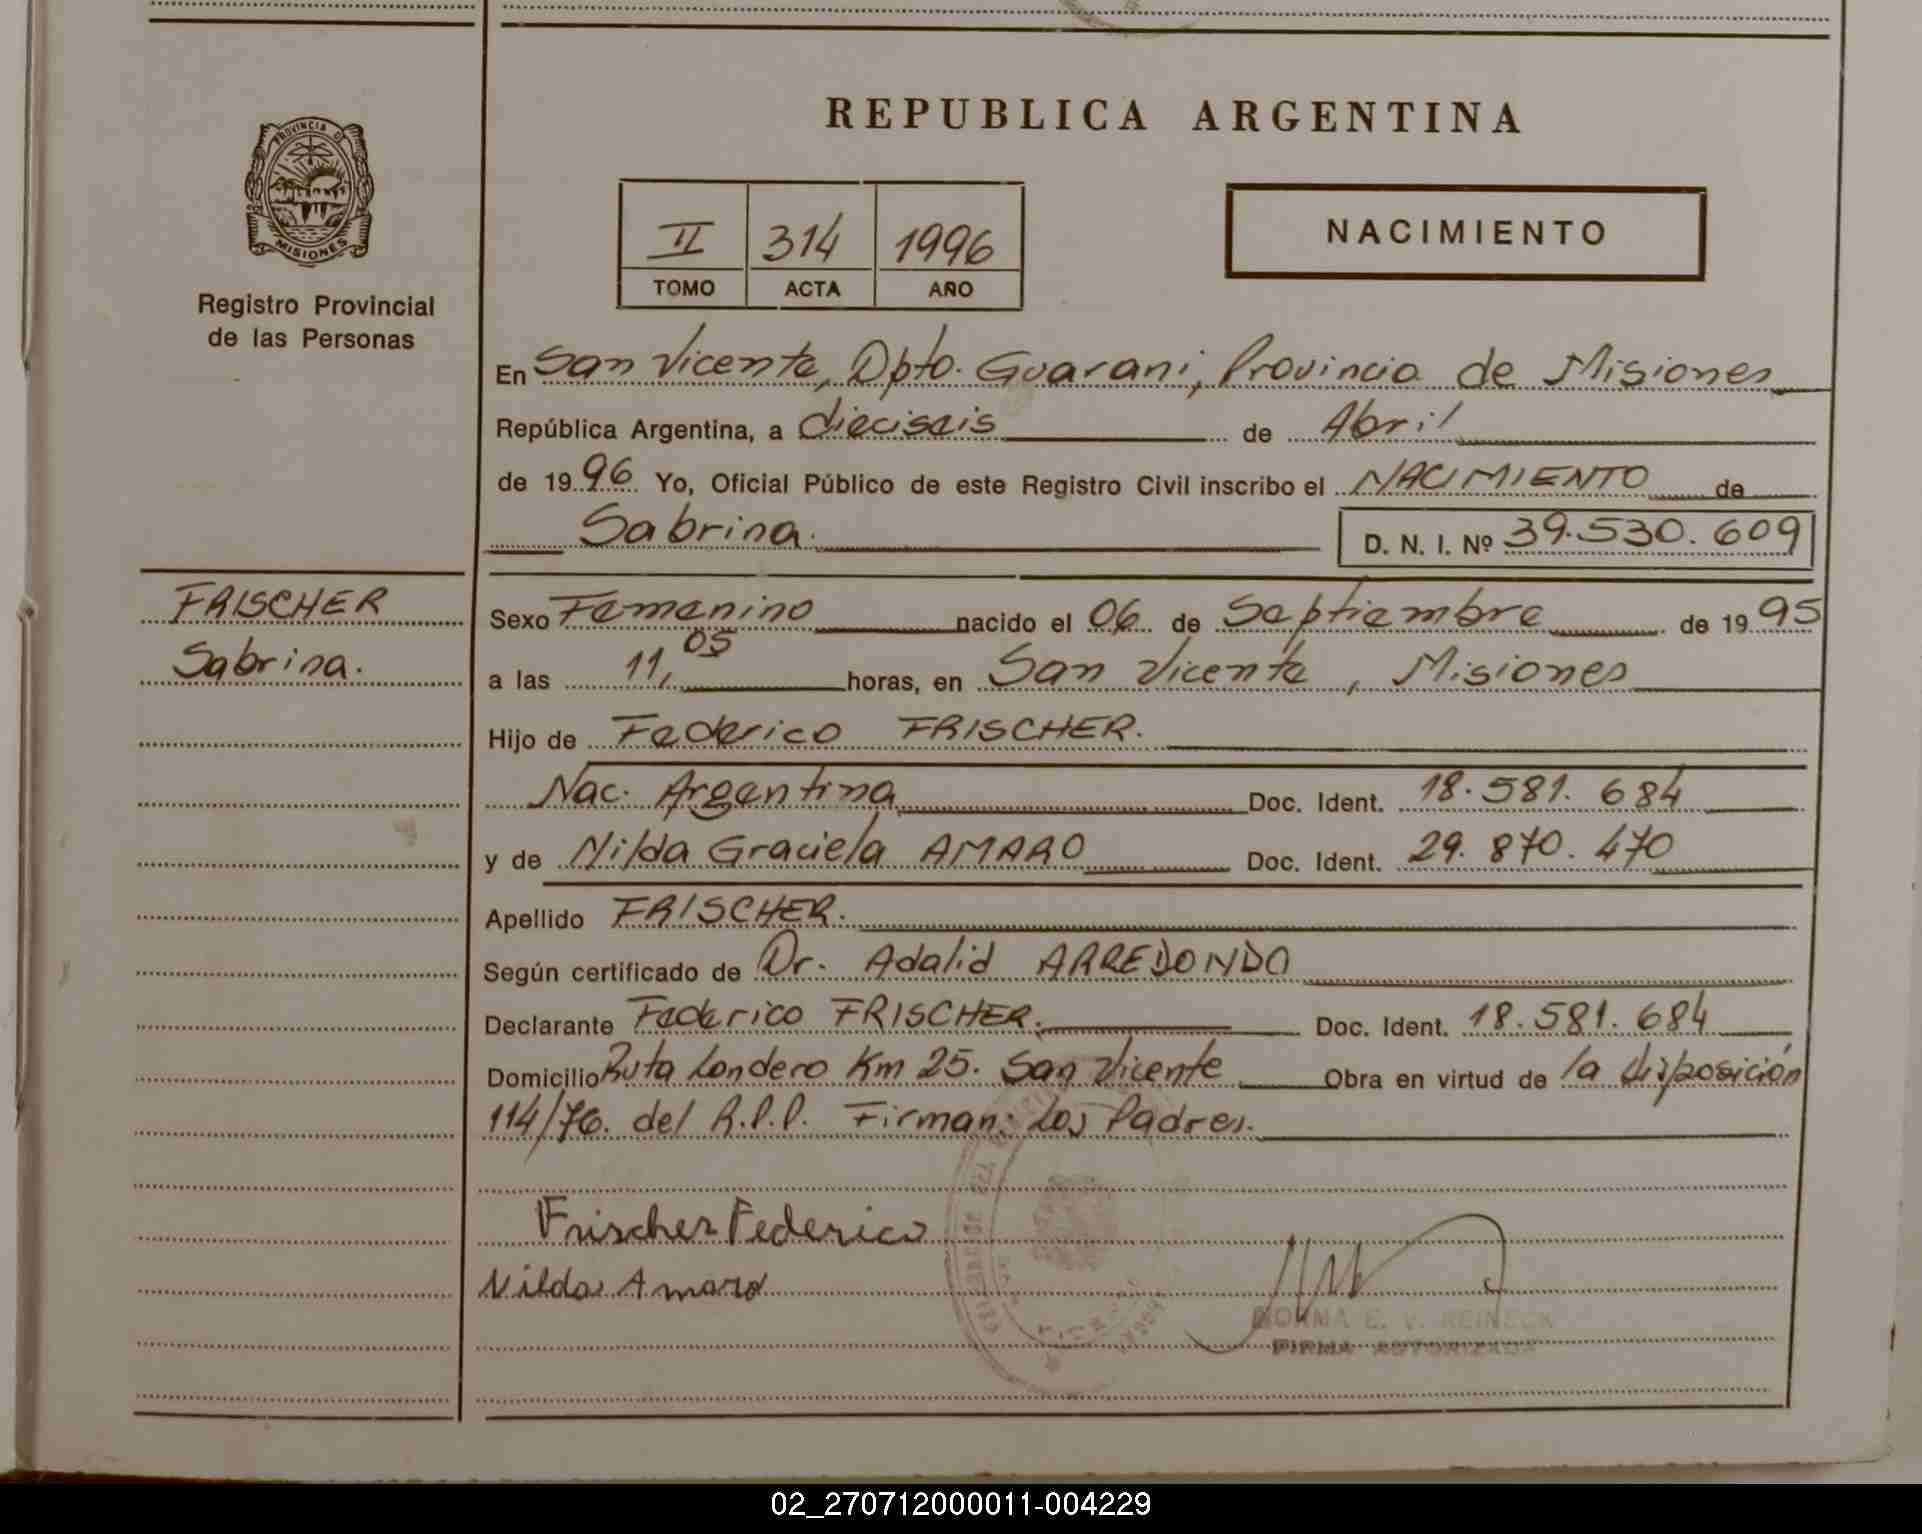 REPUBLICA ARGENTINA
PROVINCIA DE
MISIONES
Registro Provincial
de las Personas
II 314 1996
TOMO ACTA AÑO
NACIMIENTO
En San Vicente, Dpto. Guarani, Provincia de Misiones
República Argentina, a dieciseis de Abril
de 1996 Yo, Oficial Público de este Registro Civil inscribo el NACIMIENTO de
Sabrina. D. N. I. Nº 39.530.609
FRISCHER
Sabrina.
Sexo Femenino nacido el 06 de Septiembre de 1995
a las 11,05 horas, en San Vicente, Misiones
Hijo de Federico FRISCHER.
Nac. Argentina Doc. Ident. 18.581.684
y de Nilda Graciela AMARO Doc. Ident. 29.870.470
Apellido FRISCHER.
Según certificado de Dr. Adalid ARREDONDO
Declarante Federico FRISCHER. Doc. Ident. 18.581.684
Domicilio Ruta Londero Km 25. San Vicente Obra en virtud de la disposición
114/76. del R.P.P. Firman: Los Padres.
Frischer Federico
Nilda Amaro
NORMA E. V. REINECK
FIRMA AUTORIZADA
02_270712000011-004229